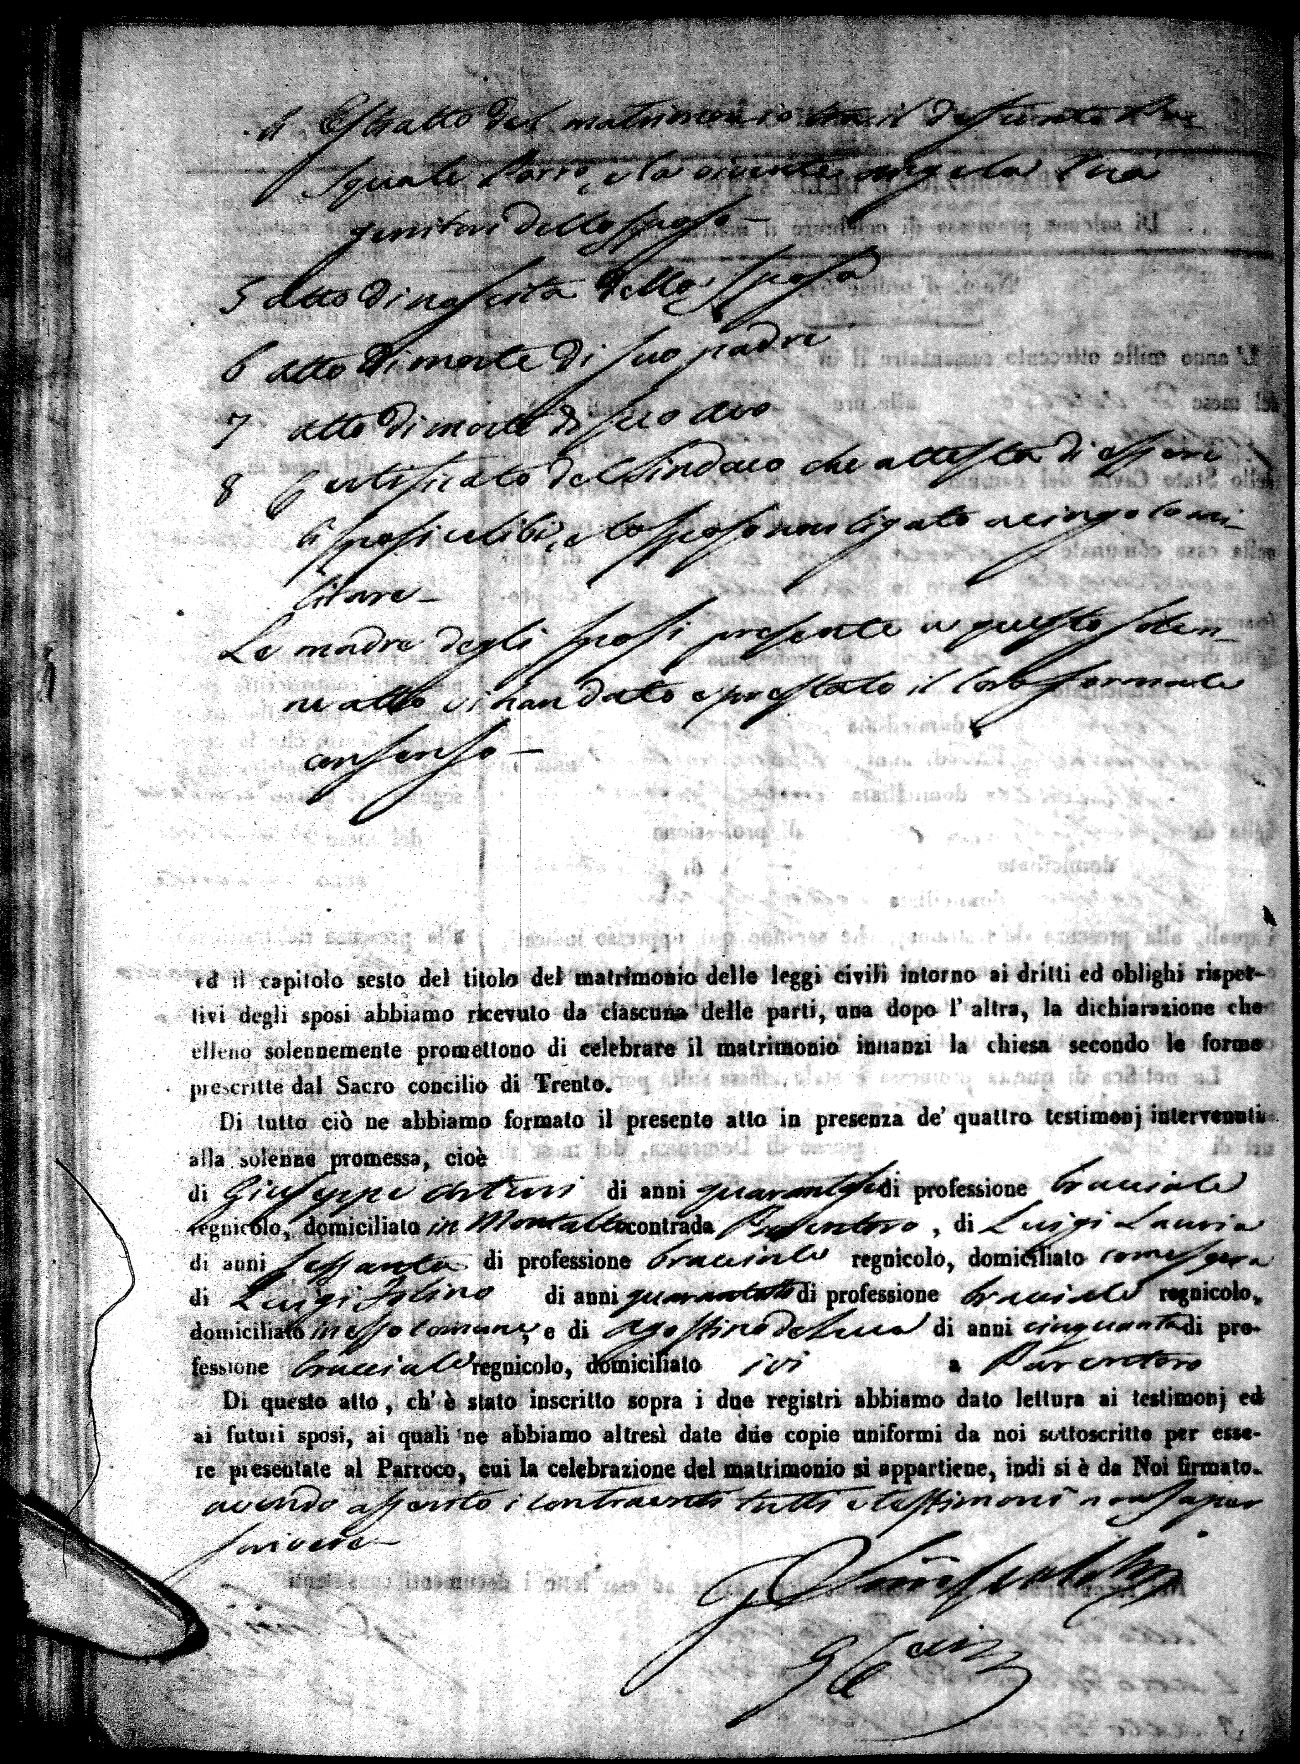 4 Estratto del matrimonio tra il defunto Pa=
squale Parro, e la vivente Angela
genitori dello sposo —
5 Atto di nascita della sposa
6 Atto di morte di suo padre
7 Atto di morte di suo avo
8 Certificato del Sindaco che attesta di essere
li sposi celibi, e lo sposo non ligato a cingolo mi_
litare_
Le madre degli sposi presente a questo solen_
ne atto vi han dato e prestato il loro formale
consenso —
ed il capitolo sesto del titolo del matrimonio delle leggi civili intorno ai dritti ed oblighi rispet-
tivi degli sposi abbiamo ricevuto da ciascuna delle parti, una dopo l' altra, la dichiarazione che
elleno solennemente promettono di celebrare il matrimonio innanzi la chiesa secondo le forme
prescritte dal Sacro concilio di Trento.
Di tutto ciò ne abbiamo formato il presente atto in presenza de' quattro testimonj intervenuti
alla solenne promessa, cioè
di Giuseppe Arturi di anni di professione bracciale
regnicolo, domiciliato in Montalto contrada , di Luigi Lauria
di anni sessanta di professione bracciale regnicolo, domiciliato come sopra
di Luigi di anni di professione bracciale regnicolo,
domiciliato in esso comune, e di Agostino de Luca di anni cinquanta di pro-
fessione bracciale regnicolo, domiciliato ivi a Parantoro
Di questo atto, ch' è stato inscritto sopra i due registri abbiamo dato lettura ai testimonj ed
ai futuri sposi, ai quali ne abbiamo altresì date due copie uniformi da noi sottoscritte per esse-
re presentate al Parroco, cui la celebrazione del matrimonio si appartiene, indi si è da Noi firmato.
avendo asserito i contraenti tutti e testimoni non saper
scrivere —